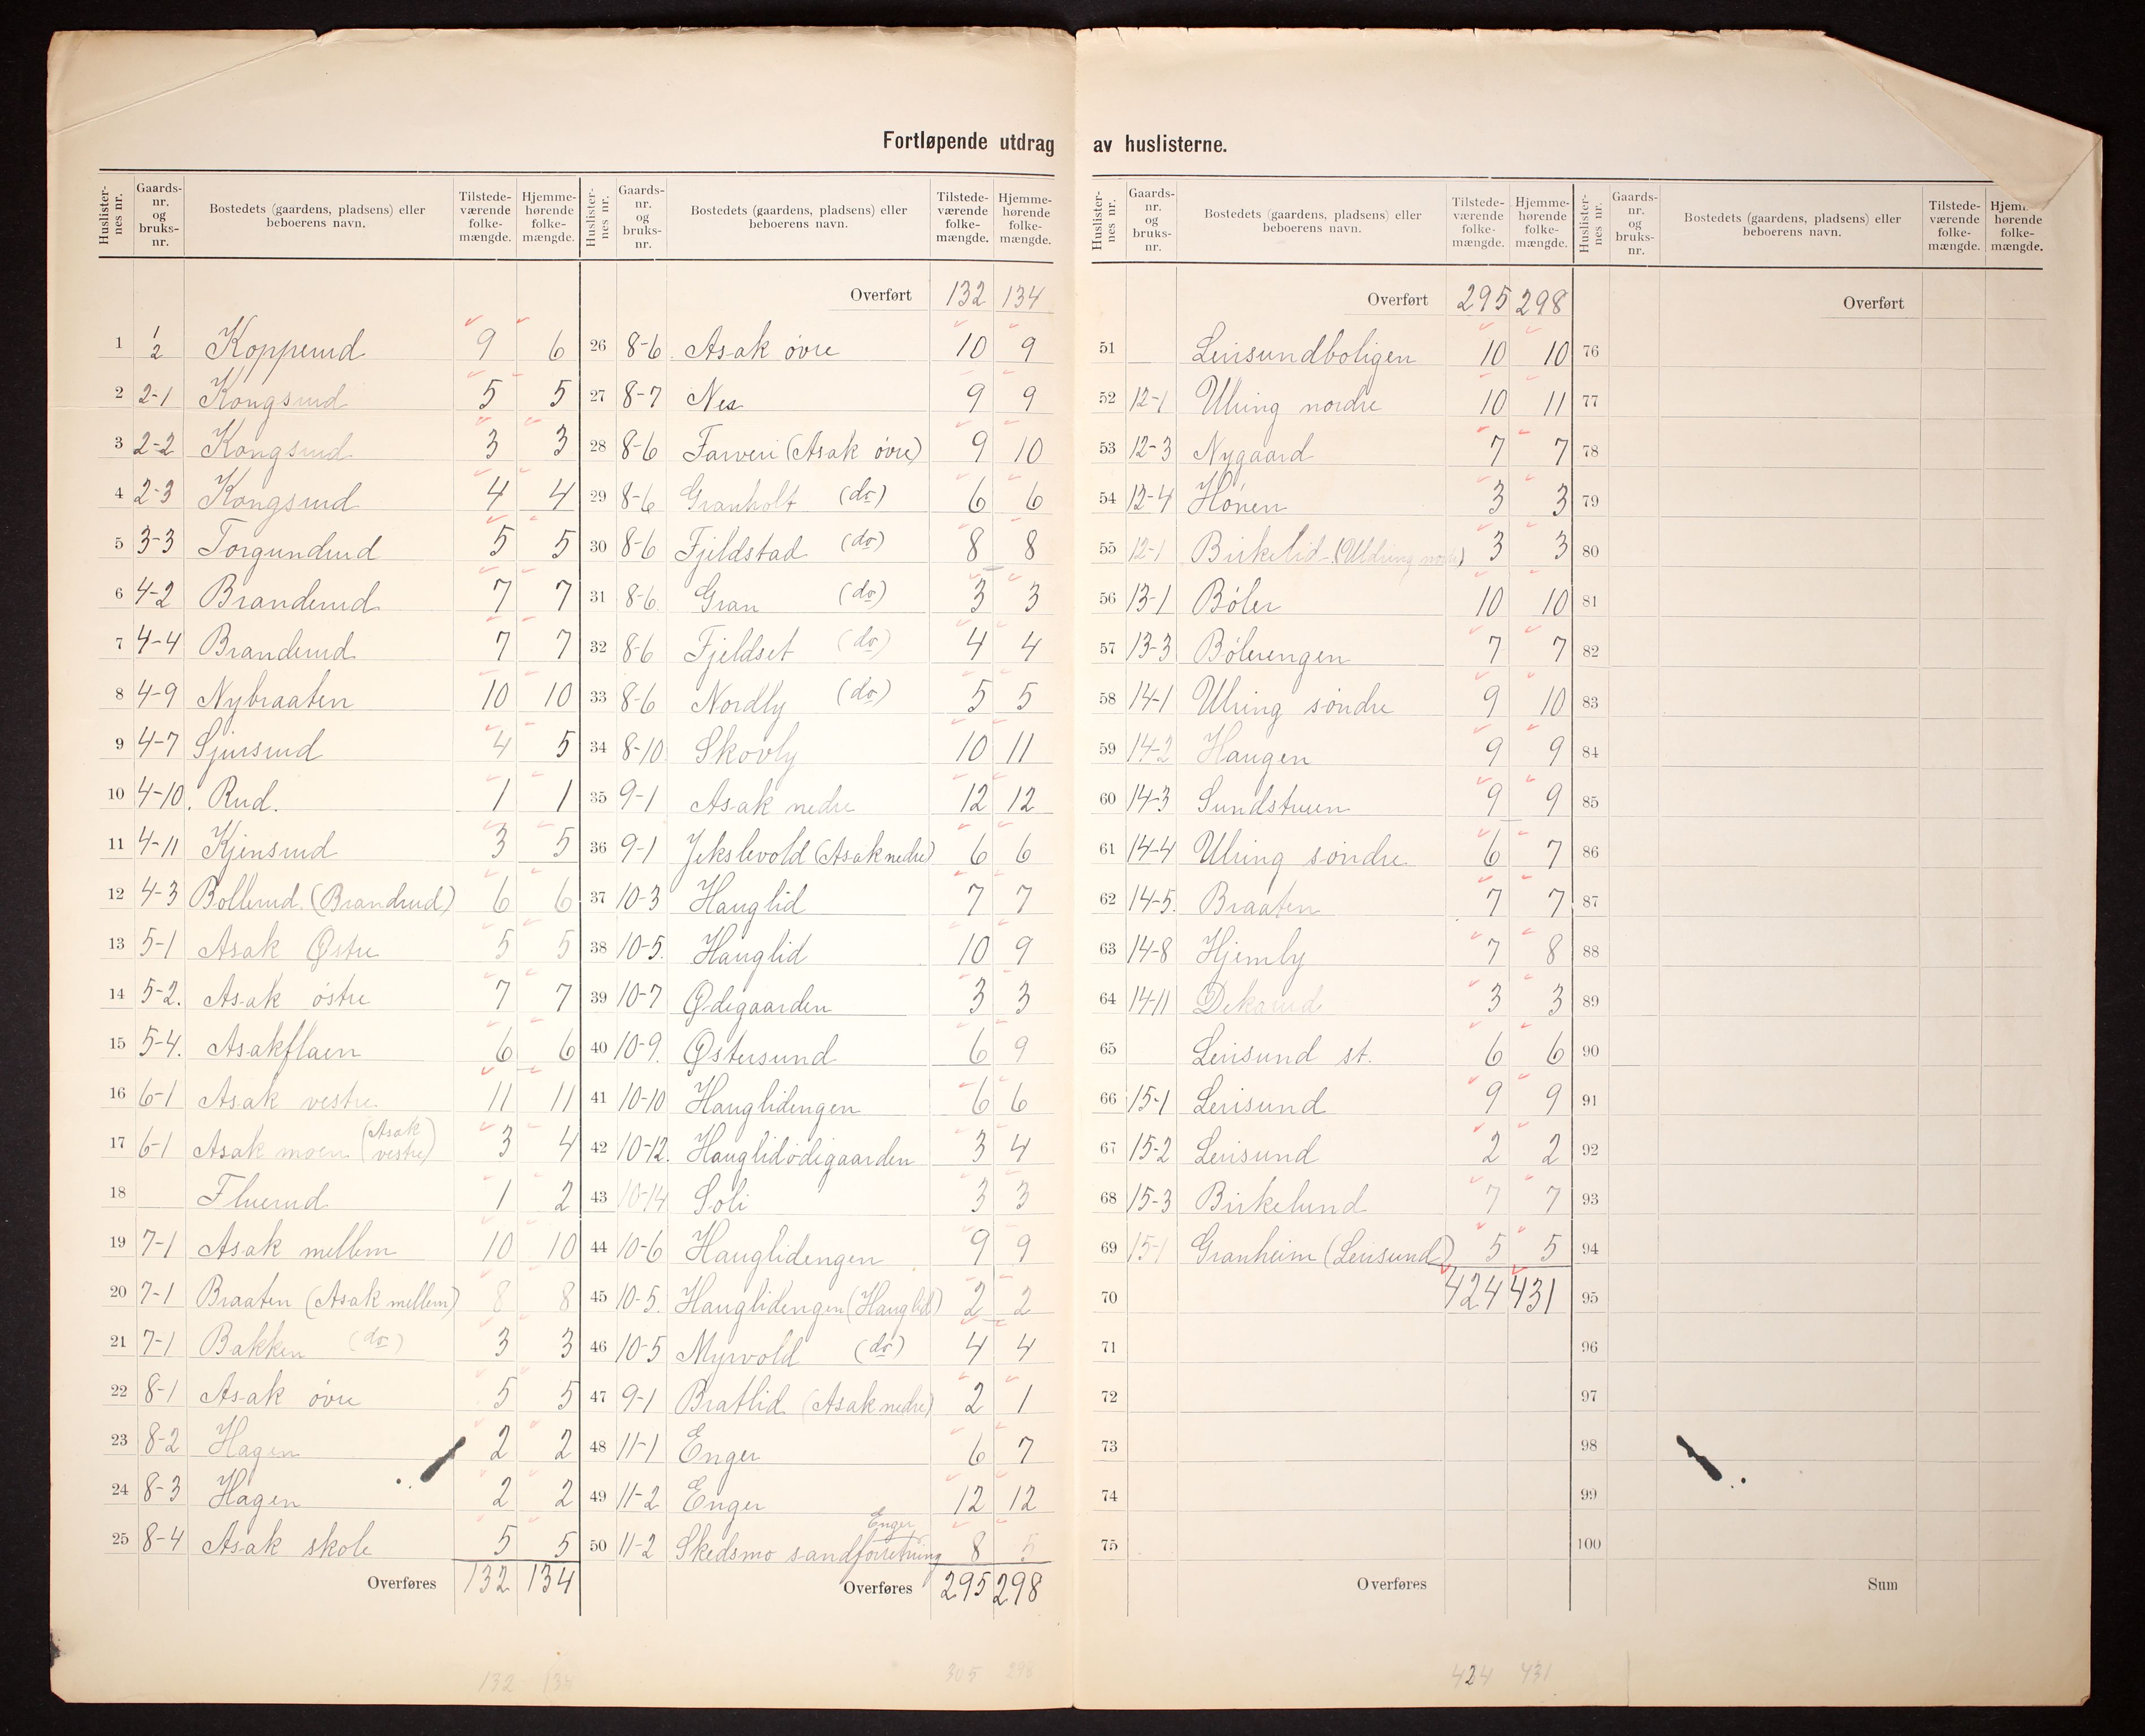 Fortløpende utdrag av huslisterne.
Huslister-nes nr. Gaards-nr. og bruks-nr. Bostedets (gaardens, pladsens) eller beboerens navn. Tilstede-værende folke-mængde. Hjemme-hørende folke-mængde.
1 1/2 Kopperud 9 6
2 2-1 Kongsrud 5 5
3 2-2 Kongsrud 3 3
4 2-3 Kongsrud 4 4
5 3-3 Torgunderud 5 5
6 4-2 Branderud 7 7
7 4-4 Branderud 7 7
8 4-9 Nybraaten 10 10
9 4-7 Sjursrud 4 5
10 4-10. Rud. 1 1
11 4-11 Kjensrud 3 5
12 4-3 Bollerud. (Brandrud) 6 6
13 5-1 Asak Østre 5 5
14 5-2. Asak østre 7 7
15 5-4. Asakflaen 6 6
16 6-1 Asak vestre 11 11
17 6-1 Asak moen (Asak vestre) 3 4
18 Fluerud 1 2
19 7-1 Asak mellem 10 10
20 7-1 Braaten (Asak mellem) 8 8
21 7-1 Bakken (do) 3 3
22 8-1 Asak øvre 5 5
23 8-2 Hagen 2 2
24 8-3 Hagen 2 2
25 8-4 Asak skole 5 5
Overføres 132 134
132 134
Huslister-nes nr. Gaards-nr. og bruks-nr. Bostedets (gaardens, pladsens) eller beboerens navn. Tilstede-værende folke-mængde. Hjemme-hørende folke-mængde.
Overført 132 134
26 8-6 Asak øvre 10 9
27 8-7 Nes 9 9
28 8-6 Farveri (Asak øvre) 9 10
29 8-6 Granholt (do) 6 6
30 8-6 Fjeldstad (do) 8 8
31 8-6 Gran (do) 3 3
32 8-6 Fjeldset (do) 4 4
33 8-6 Nordly (do) 5 5
34 8-10 Skovly 10 11
35 9-1 Asak nedre 12 12
36 9-1 Jekslevold (Asak nedre) 6 6
37 10-3 Hauglid 7 7
38 10-5. Hauglid 10 9
39 10-7 Ødegaarden 3 3
40 10-9. Østersund 6 9
41 10-10 Hauglidengen 6 6
42 10-12. Hauglidødegaarden 3 4
43 10-14 Soli 3 3
44 10-6 Hauglidengen 9 9
45 10-5. Hauglidengen (Hauglid) 2 2
46 10-5 Myrvold (do) 4 4
47 9-1 Bratlid (Asak nedre) 2 1
48 11-1 Enger 6 7
49 11-2 Enger 12 12
50 11-2 Skedsmo sandforretning Enger 8 5
Overføres 295 298
305 298
Huslister-nes nr. Gaards-nr. og bruks-nr. Bostedets (gaardens, pladsens) eller beboerens navn. Tilstede-værende folke-mængde. Hjemme-hørende folke-mængde.
Overført 295 298
51 Leirsundboligen 10 10
52 12-1 Ulring nordre 10 11
53 12-3 Nygaard 7 7
54 12-4 Hønen 3 3
55 12-1 Birkelid (Uldring nordre) 3 3
56 13-1 Bøler 10 10
57 13-3 Bølerengen 7 7
58 14-1 Ulring søndre 9 10
59 14-2 Haugen 9 9
60 14-3 Sundstuen 9 9
61 14-4 Ulring søndre 6 7
62 14-5. Braaten 7 7
63 14-8 Hjemly 7 8
64 14-11 3 3
65 Leirsund st. 6 6
66 15-1 Leirsund 9 9
67 15-2 Leirsund 2 2
68 15-3 Birkelund 7 7
69 15-1 Granheim (Leirsund) 5 5
70 424 431
71
72
73
74
75
Overføres
424 431
Huslister-nes nr. Gaards-nr. og bruks-nr. Bostedets (gaardens, pladsens) eller beboerens navn. Tilstede-værende folke-mængde. hørende folke-mængde.
Overført
76
77
78
79
80
81
82
83
84
85
86
87
88
89
90
91
92
93
94
95
96
97
98
99
100
Sum